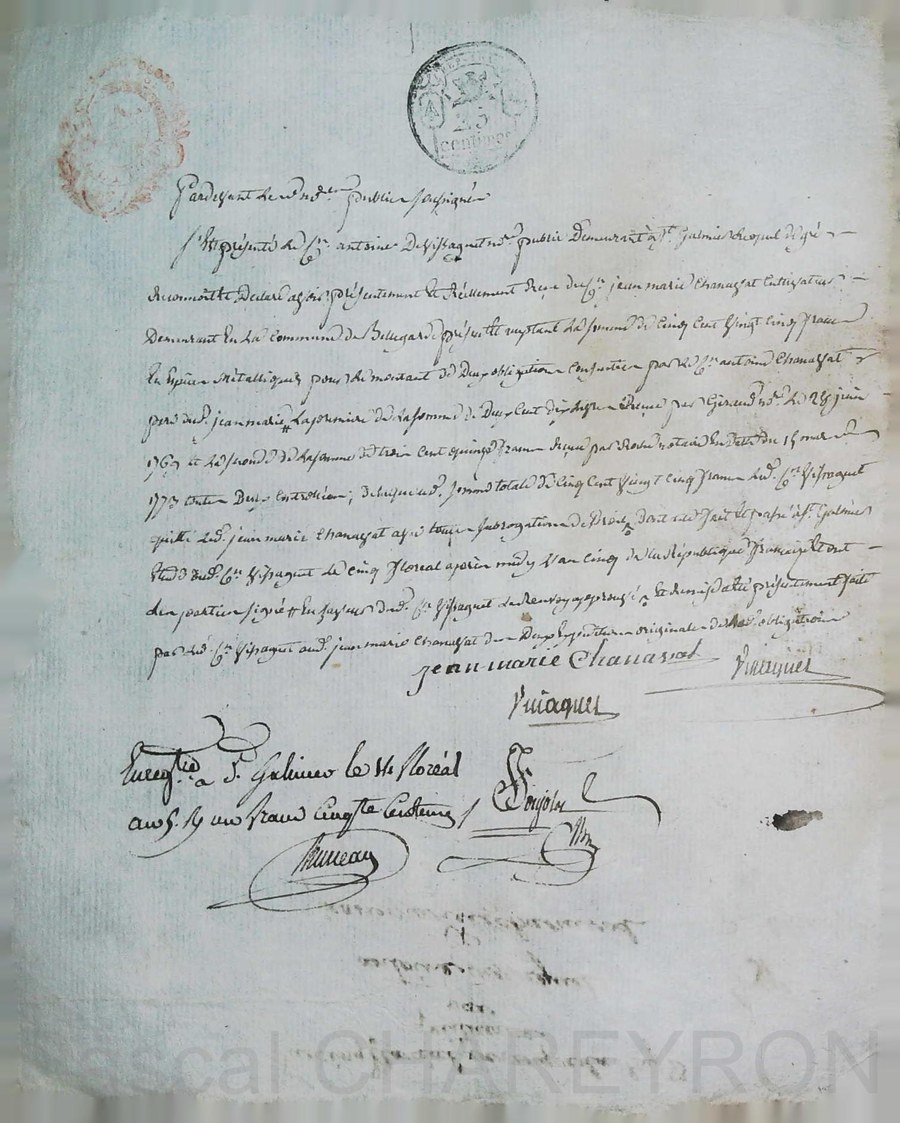 25
centimes
Pardevant le nore public soussigné
S'est présenté le Cen antoine Vissaguet nore public demeurant à St Galmier lequel de gré
reconnoit et declare avoir présentement et réellement reçu du Cen jean marie Chanassat Cultivateur
Demeurant En La Commune de Bellegarde présent acceptant La somme de Cinq Cent vingt Cinq francs
En Espèces métalliques pour le montant de Deux obligations consenties par le Cen antoine Chanassat
pere dud. jean marie La premiere de La somme de Deux Cent dix francs reçue par Giraud nore Le 28 juin
1767 et La seconde de La somme de trois Cent quinze francs reçue par notaire En Date du 15 mars
1773 de laquelle somme totale de Cinq Cent Vingt Cinq francs Led. Cen Vissaguet
quitte Led. jean marie Chanassat avec toute subrogation de Droit Dont acte fait et passé à St Galmier
Etude dud. Cen Vissaguet Le Cinq floreal après midy L'an Cinq de la République française Et ont
Les parties signé # En faveur dud. Cen Vissaguet Le Renvoy approuvé Et remise a été présentement faite
par Led. Cen Vissaguet aud. jean marie Chanassat des Deux Expeditions originales des obligations
jean marie Chanassat Vissaguet
Vissaguet
Enregistré a St Galmier le 14 floréal
an 5. Ry un franc Cinqte Centimes
Pascal CHAREYRON